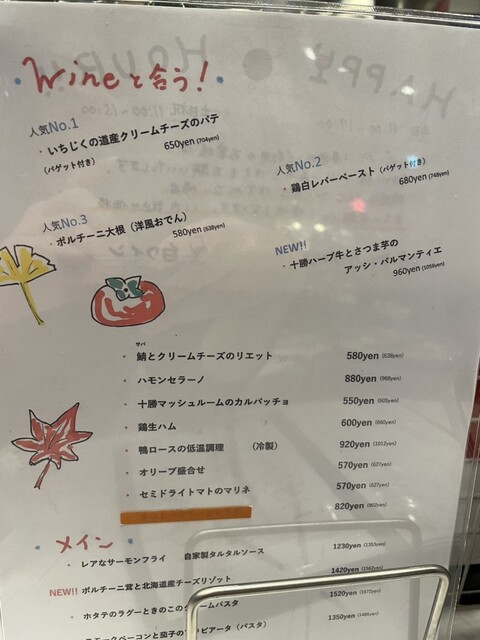 Wineと合う!
人気No.1
・いちじくの道産クリームチーズのパテ
(バゲット付き) 650yen (704yen)
人気No.2
・鶏白レバーペースト(バゲット付き)
680yen (748yen)
人気No.3
・ポルチーニ大根(洋風おでん)
580yen (638yen)
NEW!!
・十勝ハーブ牛とさつま芋の
アッシ・パルマンティエ
960yen (1056yen)
サバ
・鯖とクリームチーズのリエット 580yen (638yen)
・ハモンセラーノ 880yen (968yen)
・十勝マッシュルームのカルパッチョ 550yen (605yen)
・鶏生ハム 600yen (660yen)
・鴨ロースの低温調理 (冷製) 920yen (1012yen)
・オリーブ盛合せ 570yen (627yen)
・セミドライトマトのマリネ 570yen (627yen)
820yen (902yen)
・メイン・
・レアなサーモンフライ 自家製タルタルソース 1230yen (1353yen)
NEW!! ポルチーニ茸と北海道産チーズリゾット 1420yen (1562yen)
・ホタテのラグーときのこのクリームパスタ 1520yen (1672yen)
ベーコンと茄子の ビアータ(パスタ) 1350yen (1485yen)
HAPPY HOUR!!